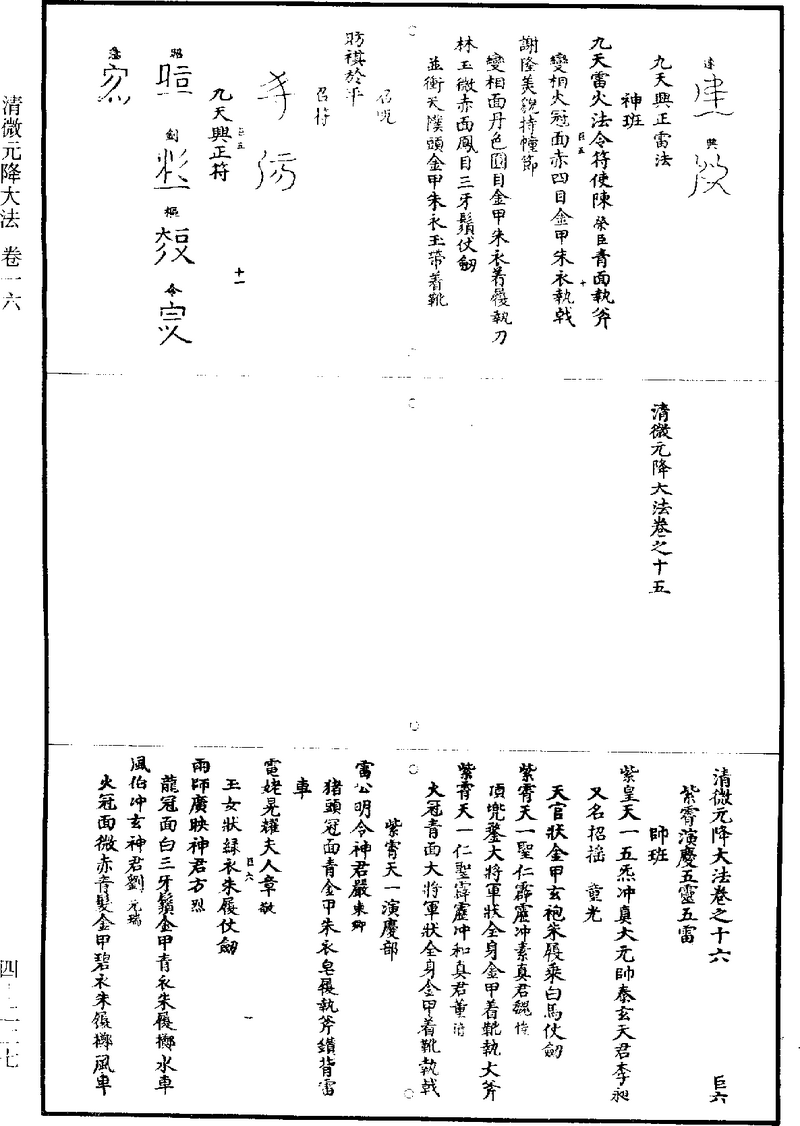 清微元降大法 卷一六
達 興
九天興正雷法
神班
九天雷火法令符使陳榮臣青面執斧
變相火冠面赤四目金甲朱衣執戟
謝隆美貌持幢節
變相面丹色圓目金甲朱衣着履執刀
林玉微赤面鳳目三牙鬚仗劒
並衝天幞頭金甲朱衣玉帶着靴
召咒
昉祺於平
召符
九天興正符
巨五
十
巨五
十一
昭 劍 樞 令
清微元降大法卷之十五
清微元降大法卷之十六
巨六
紫霄演慶五靈五雷
師班
紫皇天一五炁冲真大元帥泰玄天君李昶
又名招搖 童光
天官狀金甲玄袍朱履乘白馬仗劒
紫霄天一聖仁霹靂冲素真君魏
頂兜鍪大將軍狀全身金甲着靴執大斧
紫霄天一仁聖霹靂冲和真君董
大冠青面大將軍狀全身金甲着靴執戟
紫霄天一演慶部
雷公明令神君嚴東卿
猪頭冠面青金甲朱衣皂履執斧鑽背雷
車
電姥晃耀夫人章敬
玉女狀綠衣朱履仗劒
巨六
一
雨師廣映神君方烈
龍冠面白三牙鬚金甲青衣朱履擲水車
風伯冲玄神君劉元瑞
火冠面微赤青髮金甲碧衣朱履擲風車
四-二二七